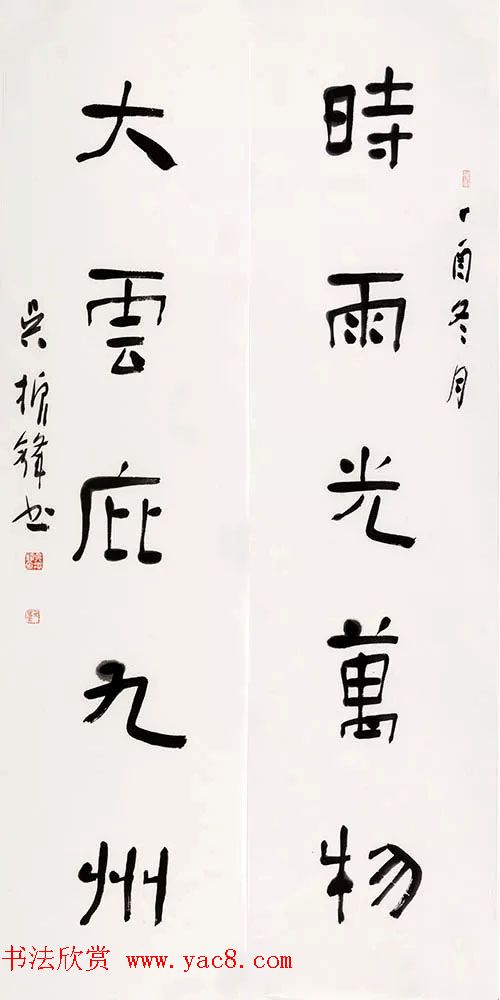 丁酉冬月
時雨光萬物
大雲庇九州
吴振鋒书
书法欣赏 www.yac8.com